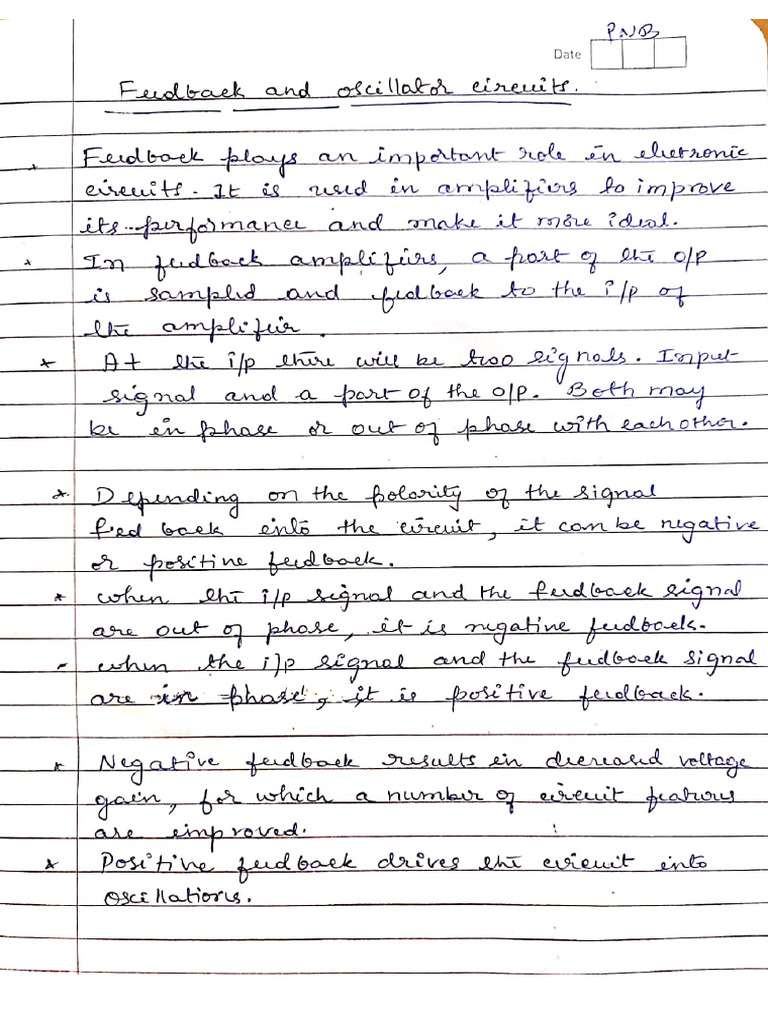 PNB
Date
Feedback and oscillator circuits.
* Feedback plays an important role in electronic
circuits. It is used in amplifiers to improve
its performance and make it more ideal.
* In feedback amplifiers, a part of the O/P
is sampled and feedback to the i/p of
the amplifier.
* At the i/p there will be two signals. Input
signal and a part of the O/P. Both may
be in phase or out of phase with each other.
* Depending on the polarity of the signal
fied back into the circuit, it can be negative
or positive feedback.
* when the i/p signal and the feedback signal
are out of phase, it is negative feedback.
- when the i/p signal and the feedback signal
are in phase, it is positive feedback.
* Negative feedback results in decreased voltage
gain, for which a number of circuit features
are improved.
* Positive feedback drives the circuit into
oscillations.